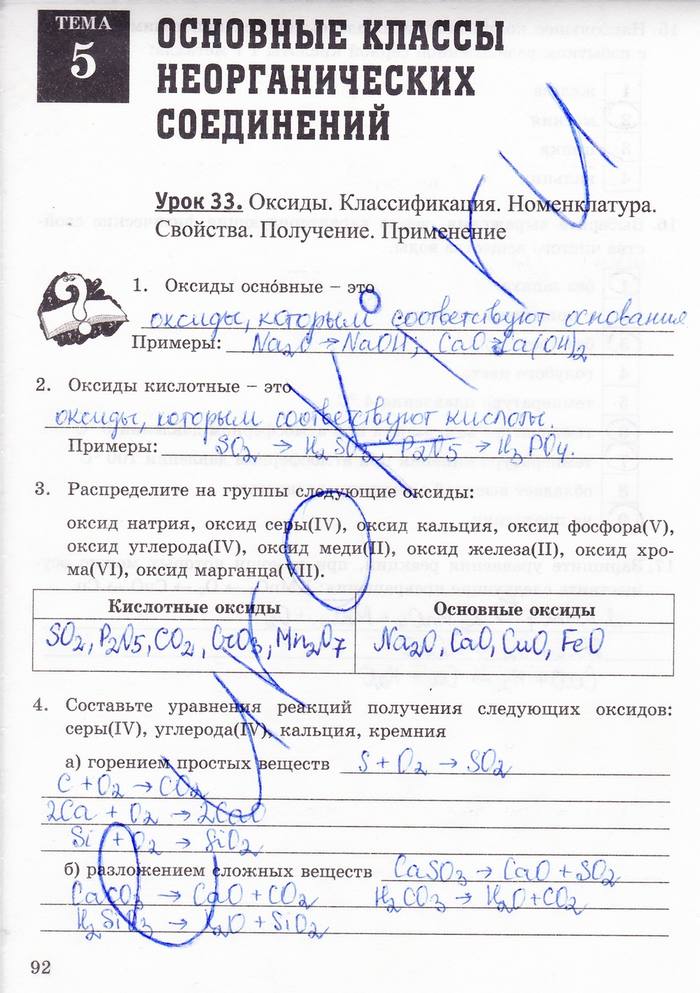 ТЕМА
5
ОСНОВНЫЕ КЛАССЫ
НЕОРГАНИЧЕСКИХ
СОЕДИНЕНИЙ
Урок 33. Оксиды. Классификация. Номенклатура.
Свойства. Получение. Применение
1. Оксиды оснóвные – это
оксиды, которым соответствуют основания
Примеры: Na2O → NaOH; CaO → Ca(OH)2
2. Оксиды кислотные – это
оксиды, которым соответствуют кислоты.
Примеры: SO2 → H2SO3, P2O5 → H3PO4.
3. Распределите на группы следующие оксиды:
оксид натрия, оксид серы(IV), оксид кальция, оксид фосфора(V),
оксид углерода(IV), оксид меди(II), оксид железа(II), оксид хро-
ма(VI), оксид марганца(VII).
Кислотные оксиды Основные оксиды
SO2, P2O5, CO2, CrO3, Mn2O7 Na2O, CaO, CuO, FeO
4. Составьте уравнения реакций получения следующих оксидов:
серы(IV), углерода(IV), кальция, кремния
а) горением простых веществ S + O2 → SO2
C + O2 → CO2
2Ca + O2 → 2CaO
Si + O2 → SiO2
б) разложением сложных веществ CaSO3 → CaO + SO2
CaCO3 → CaO + CO2 H2CO3 → H2O + CO2
H2SiO3 → H2O + SiO2
92